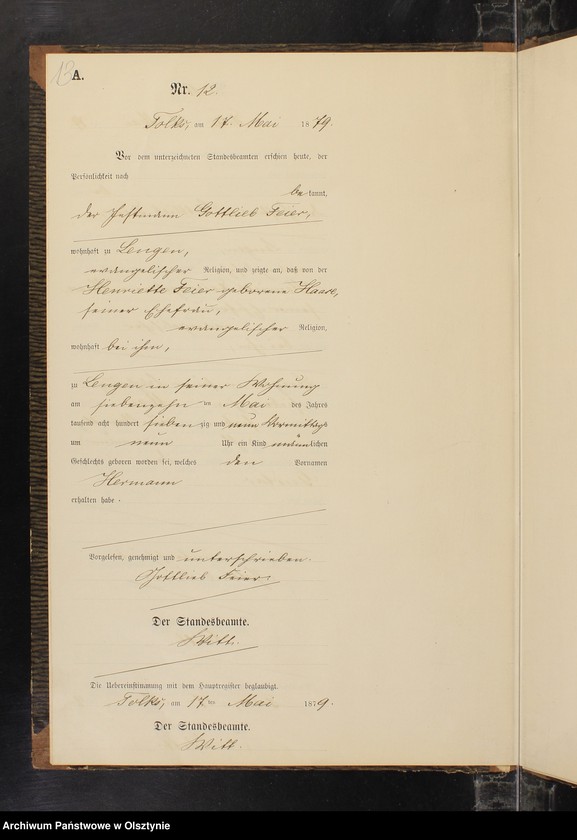 13
A.
Nr. 12.
Tolks, am 17. Mai 1879.
Vor dem unterzeichneten Standesbeamten erschien heute, der
Persönlichkeit nach
bekannt,
der Gottlieb Feier,
wohnhaft zu Lengen,
evangelischer Religion, und zeigte an, daß von der
Henriette Feier geborene Haase,
seiner Ehefrau,
evangelischer Religion,
wohnhaft bei ihm,
zu Lengen in seiner Wohnung
am siebenzehn ten Mai des Jahres
tausend acht hundert siebenzig und neun Vormittags
um neun Uhr ein Kind männlichen
Geschlechts geboren worden sei, welches den Vornamen
Hermann
erhalten habe.
Vorgelesen, genehmigt und unterschrieben.
Gottlieb Feier.
Der Standesbeamte.
Witt.
Die Uebereinstimmung mit dem Hauptregister beglaubigt.
Tolks, am 17ten Mai 1879.
Der Standesbeamte.
Witt.
Archiwum Państwowe w Olsztynie